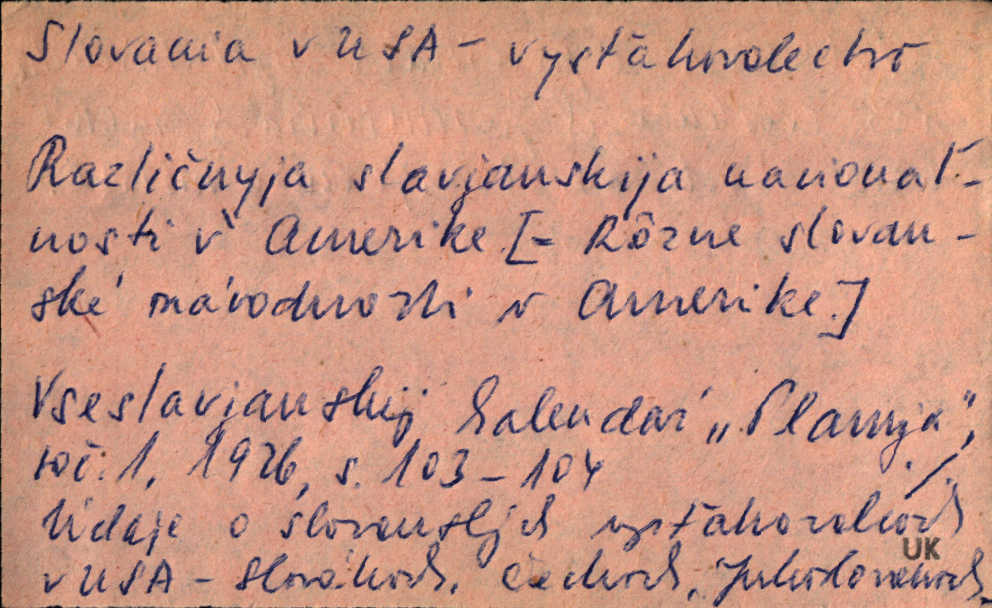 Slovania v USA – vysťahovalectvo
Različnyja slavjanskija nacionaľ-
nosti v Amerike [= Rôzne slovan-
ské národnosti v Amerike.]
Vseslavjanskij kalendař „Plamja",
roč. 1, 1926, s. 103–104 ./.
Údaje o slovanských vysťahovalcoch
UK
v USA – Slovákoch, Čechoch, Juhoslovanoch,